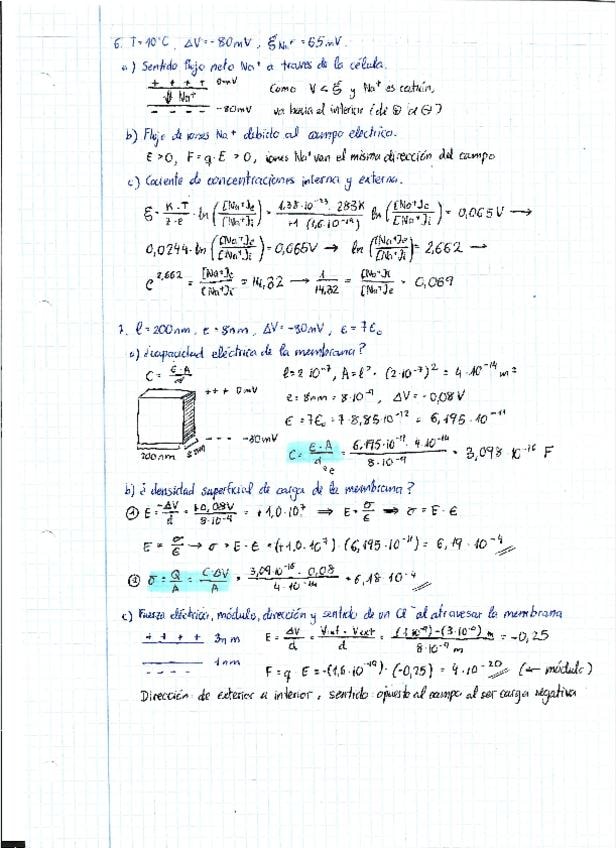 6. T=10°C, ΔV=-80mV, ξNa⁺ = 65mV.
a) Sentido flujo neto Na⁺ a través de la célula.
+ + + + 0mV Como V < ξ y Na⁺ es catión,
⇓ Na⁺
- - - - -80mV va hacia el interior (de ⊕ a ⊖)
b) Flujo de iones Na⁺ debido al campo eléctrico.
E>0, F=q·E>0, iones Na⁺ van el misma dirección del campo
c) Cociente de concentraciones interna y externa.
ξ = K·T/z·e · ln([Na⁺]e/[Na⁺]i) = 1,38·10⁻²³ · 283K/+1 (1,6·10⁻¹⁹) ln([Na⁺]e/[Na⁺]i) = 0,065V →
0,0244·ln([Na⁺]e/[Na⁺]i) = 0,065V → ln([Na⁺]e/[Na⁺]i) = 2,662 →
e^2,662 = [Na⁺]e/[Na⁺]i = 14,32 → 1/14,32 = [Na⁺]i/[Na⁺]e = 0,069
7. l=200nm, e=8nm, ΔV=-80mV, ε=7ε₀
a) ¿capacidad eléctrica de la membrana?
C = ε·A/d l=2·10⁻⁷, A=l² = (2·10⁻⁷)² = 4·10⁻¹⁴ m²
+++ 0mV e=8nm=8·10⁻⁹, ΔV=-0,08V
ε=7ε₀=7·8,85·10⁻¹² = 6,195·10⁻¹¹
--- -80mV
200nm 8nm C = ε·A/d = 6,195·10⁻¹¹·4·10⁻¹⁴/8·10⁻⁹ = 3,098·10⁻¹⁶ F
b) ¿densidad superficial de carga de la membrana?
① E = -ΔV/d = +0,08V/8·10⁻⁹ = +1,0·10⁷ ⟹ E = σ/ε → σ = E·ε
E = σ/ε → σ = E·ε = (+1,0·10⁷)·(6,195·10⁻¹¹) = 6,19·10⁻⁴
② σ = Q/A = C·ΔV/A = 3,09·10⁻¹⁶·0,08/4·10⁻¹⁴ = 6,18·10⁻⁴
c) Fuerza eléctrica, módulo, dirección y sentido de un Cl⁻ al atravesar la membrana
+ + + + 3nm E = ΔV/d = Vint - Vext/d = (1·10⁻⁹)-(3·10⁻⁹)m/8·10⁻⁹ m = -0,25
- - - - 1nm
F = q·E = -(1,6·10⁻¹⁹)·(-0,25) = 4·10⁻²⁰ (← módulo)
Dirección de exterior a interior, sentido opuesto al campo al ser carga negativa